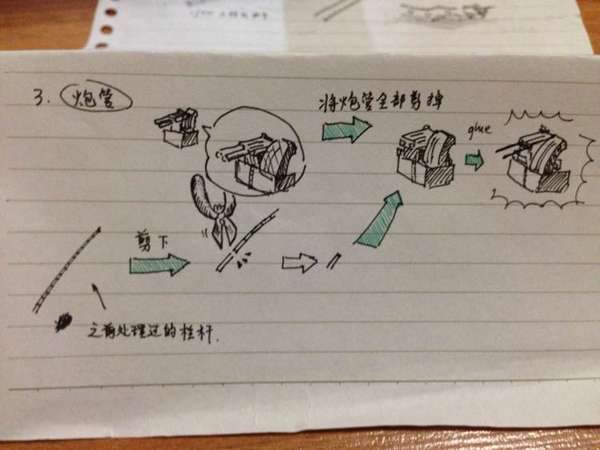 3. 炮管
将炮管全部剪掉
glue
剪下
之前处理过的栏杆.